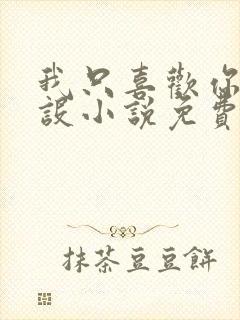 我只喜歡你
設小說免費
抹茶豆豆餅